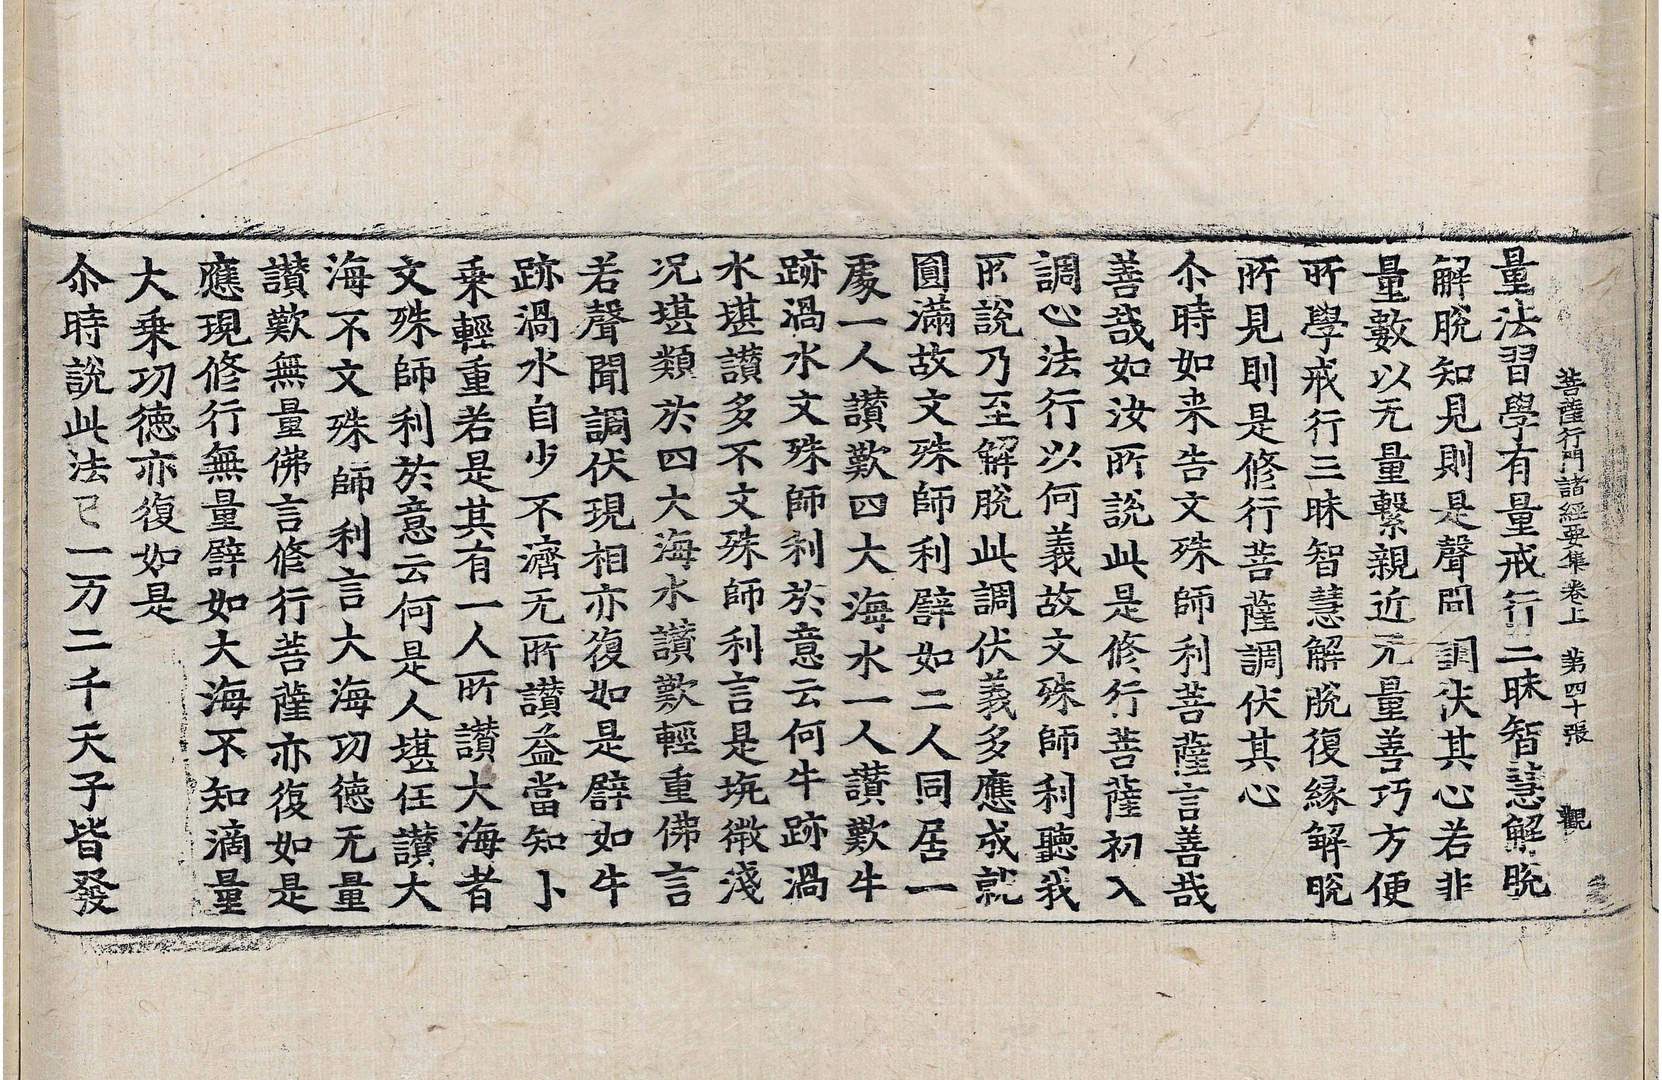 菩薩行門諸經要集卷上 第四十張 觀
量法習學有量戒行三昧智慧解脫
解脫知見則是聲聞調伏其心若非
量數以无量繫親近无量善巧方便
所學戒行三昧智慧解脫復緣解脫
所見則是修行菩薩調伏其心
尒時如来告文殊師利菩薩言善哉
善哉如汝所說此是修行菩薩初入
調心法行以何義故文殊師利聽我
所說乃至解脫此調伏義多應成就
圓滿故文殊師利辟如二人同居一
處一人讃歎四大海水一人讃歎牛
跡渦水文殊師利於意云何牛跡渦
水堪讃多不文殊師利言是埦微淺
况堪類於四大海水讃歎輕重佛言
若聲聞調伏現相亦復如是辟如牛
跡渦水自少不濟无所讃益當知卜
乗輕重若是其有一人所讃大海者
文殊師利於意云何是人堪任讃大
海不文殊師利言大海功德无量
讃歎無量佛言修行菩薩亦復如是
應現修行無量辟如大海不知滴量
大乗功德亦復如是
尒時說此法已一万二千天子皆發